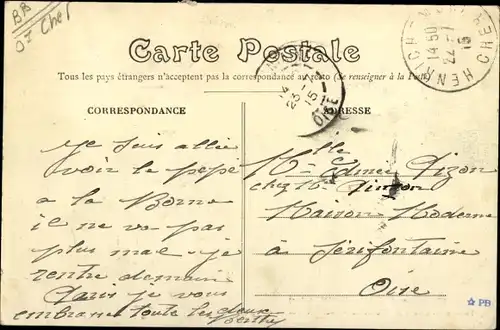 BB
Cher
Carte Postale
Tous les pays étrangers n'acceptent pas la correspondance au recto (Se renseigner à la Poste)
CORRESPONDANCE
ADRESSE
HENRICH
CHER
14 50
22 - 1
15
OISE
Je suis allée
voir le pépé
a la Borne
il ne va pas
plus mal - je
rentre demain
Paris je vous
embrasse toute les deux
Berthe
Mlle
Edmée Pizon
chez Mr
Maison Moderne
à Sérifontaine
Oise
PB